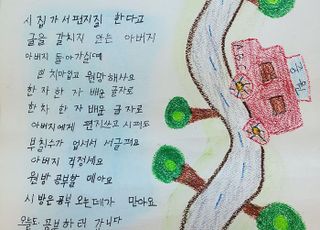 시집가서 편지질 한다고
글을 갈치지 안는 아버지
아버지 돌아가실때
원망해사요
한자 한자 배운 글자로
한자 한자 배운 글자로
아버지에게 편지쓰고 시퍼도
부칠수가 업서서 서글퍼요
아버지 걱정세요
원방 공부할
오는데가 만아요
오늘도 공부하러 갑니다